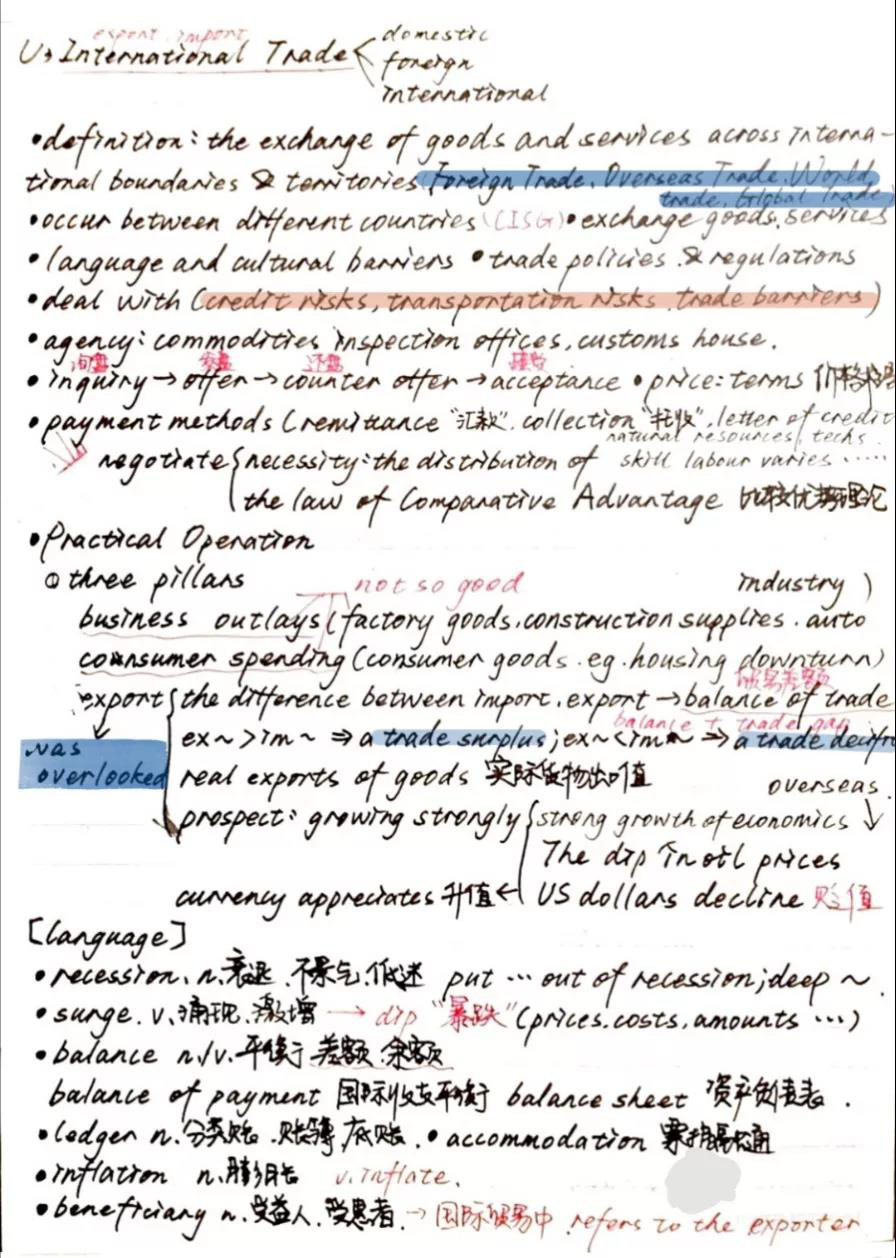 export import
U3 International Trade
domestic
foreign
international
•definition: the exchange of goods and services across interna-
tional boundaries & territories Foreign Trade. Overseas Trade. World
trade, Global Trade
•occur between different countries (CISG) •exchange goods. services
•language and cultural barriers •trade policies & regulations
•deal with (credit risks, transportation risks. trade barriers)
•agency: commodities inspection offices, customs house.
询盘 发盘 还盘 接收
•inquiry→offer→counter offer→acceptance •price: terms 价格
•payment methods (remittance "汇款". collection "托收". letter of credit
natural resources, techs
negotiate { necessity: the distribution of skill labour varies ......
the law of Comparative Advantage 比较优势理论
•Practical Operation
① three pillars not so good industry )
business outlays (factory goods. construction supplies. auto
consumer spending (consumer goods. eg. housing downturn)
贸易差额
export { the difference between import. export → balance of trade
balance trade gap
ex~ > im~ ⇒ a trade surplus; ex~ < im~ ⇒ a trade
was
overlooked
real exports of goods 实际货物出口值 overseas.
prospect: growing strongly { strong growth of economics ↓
The dip in oil prices
currency appreciates 升值← US dollars decline 贬值
[language]
•recession. n. 衰退. 不景气. 低迷 put ... out of recession; deep ~.
•surge. v. 涌现. 激增 → dip "暴跌" (prices. costs. amounts ...)
•balance n./v. 平衡. 差额. 余额
balance of payment 国际收支平衡 balance sheet 资产负债表.
•ledger n. 分类账. 账簿. 底账. •accommodation
•inflation n. 膨胀 v. inflate.
•beneficiary n. 受益人. 受惠者. → 国际贸易中 refers to the exporter